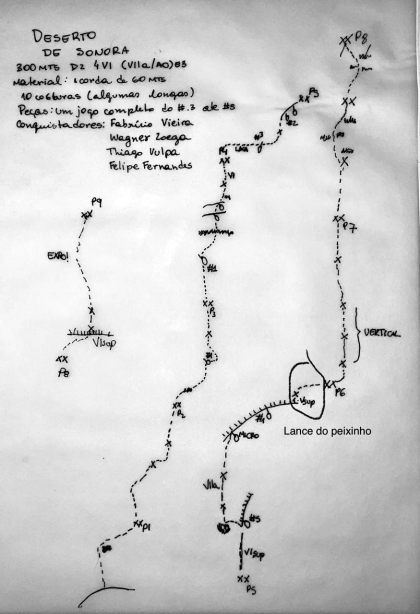 DESERTO
DE SONORA
300 MTS D2 4 VI (VIIa/A0) E3
Material: 1 corda de 60 MTS
10 costuras (algumas longas)
Peças: um jogo completo do #.3 até #3
Conquistadores: Fabrício Vieira
Wagner Zoega
Thiago Vulpa
Felipe Fernandes
P8
P5
#3
#2
P4
VI
P9
EXPO!
#1
P7
P3
VERTICAL
VIsup
P8
P6
VIsup
P2
#4
Lance do peixinho
MICRO
VIIa
P1
#3
VIsup
P5